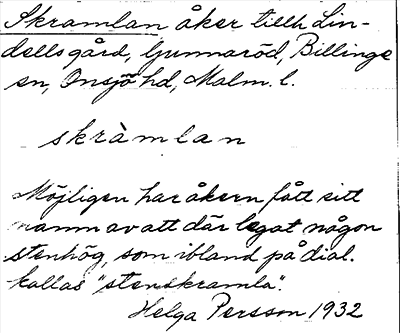 Skramlan åker tillh Lin-
dells gård, Gunnaröd, Billinge
sn, Onsjö hd, Malm. l.
skràmlan
Möjligen har åkern fått sitt
namn av att där legat någon
stenhög, som ibland på dial.
kallas "stenskramla".
Helga Persson 1932